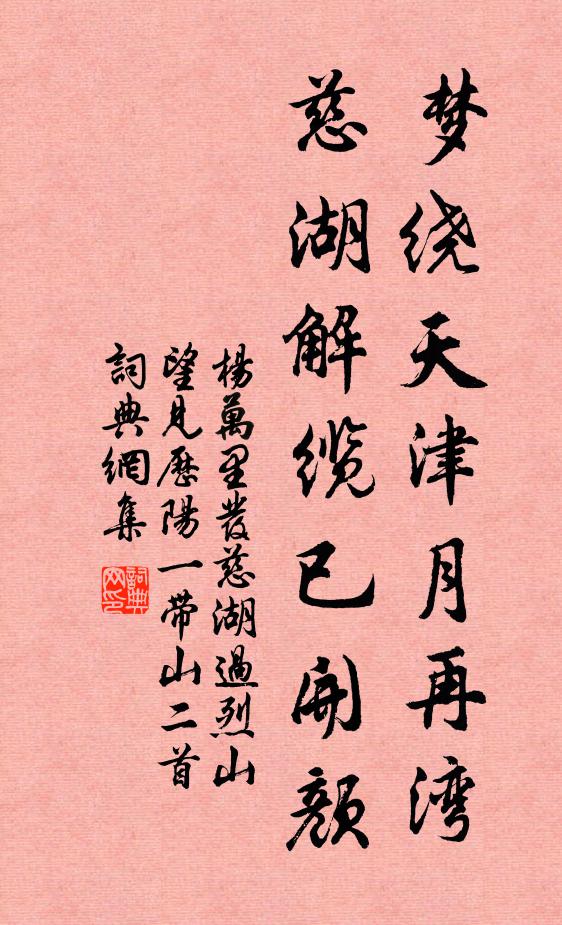 梦绕天津月再湾
慈湖解缆已开颜
楊萬里發慈湖過烈山
望見歷陽一带山二首
詞典網集
詞典网印